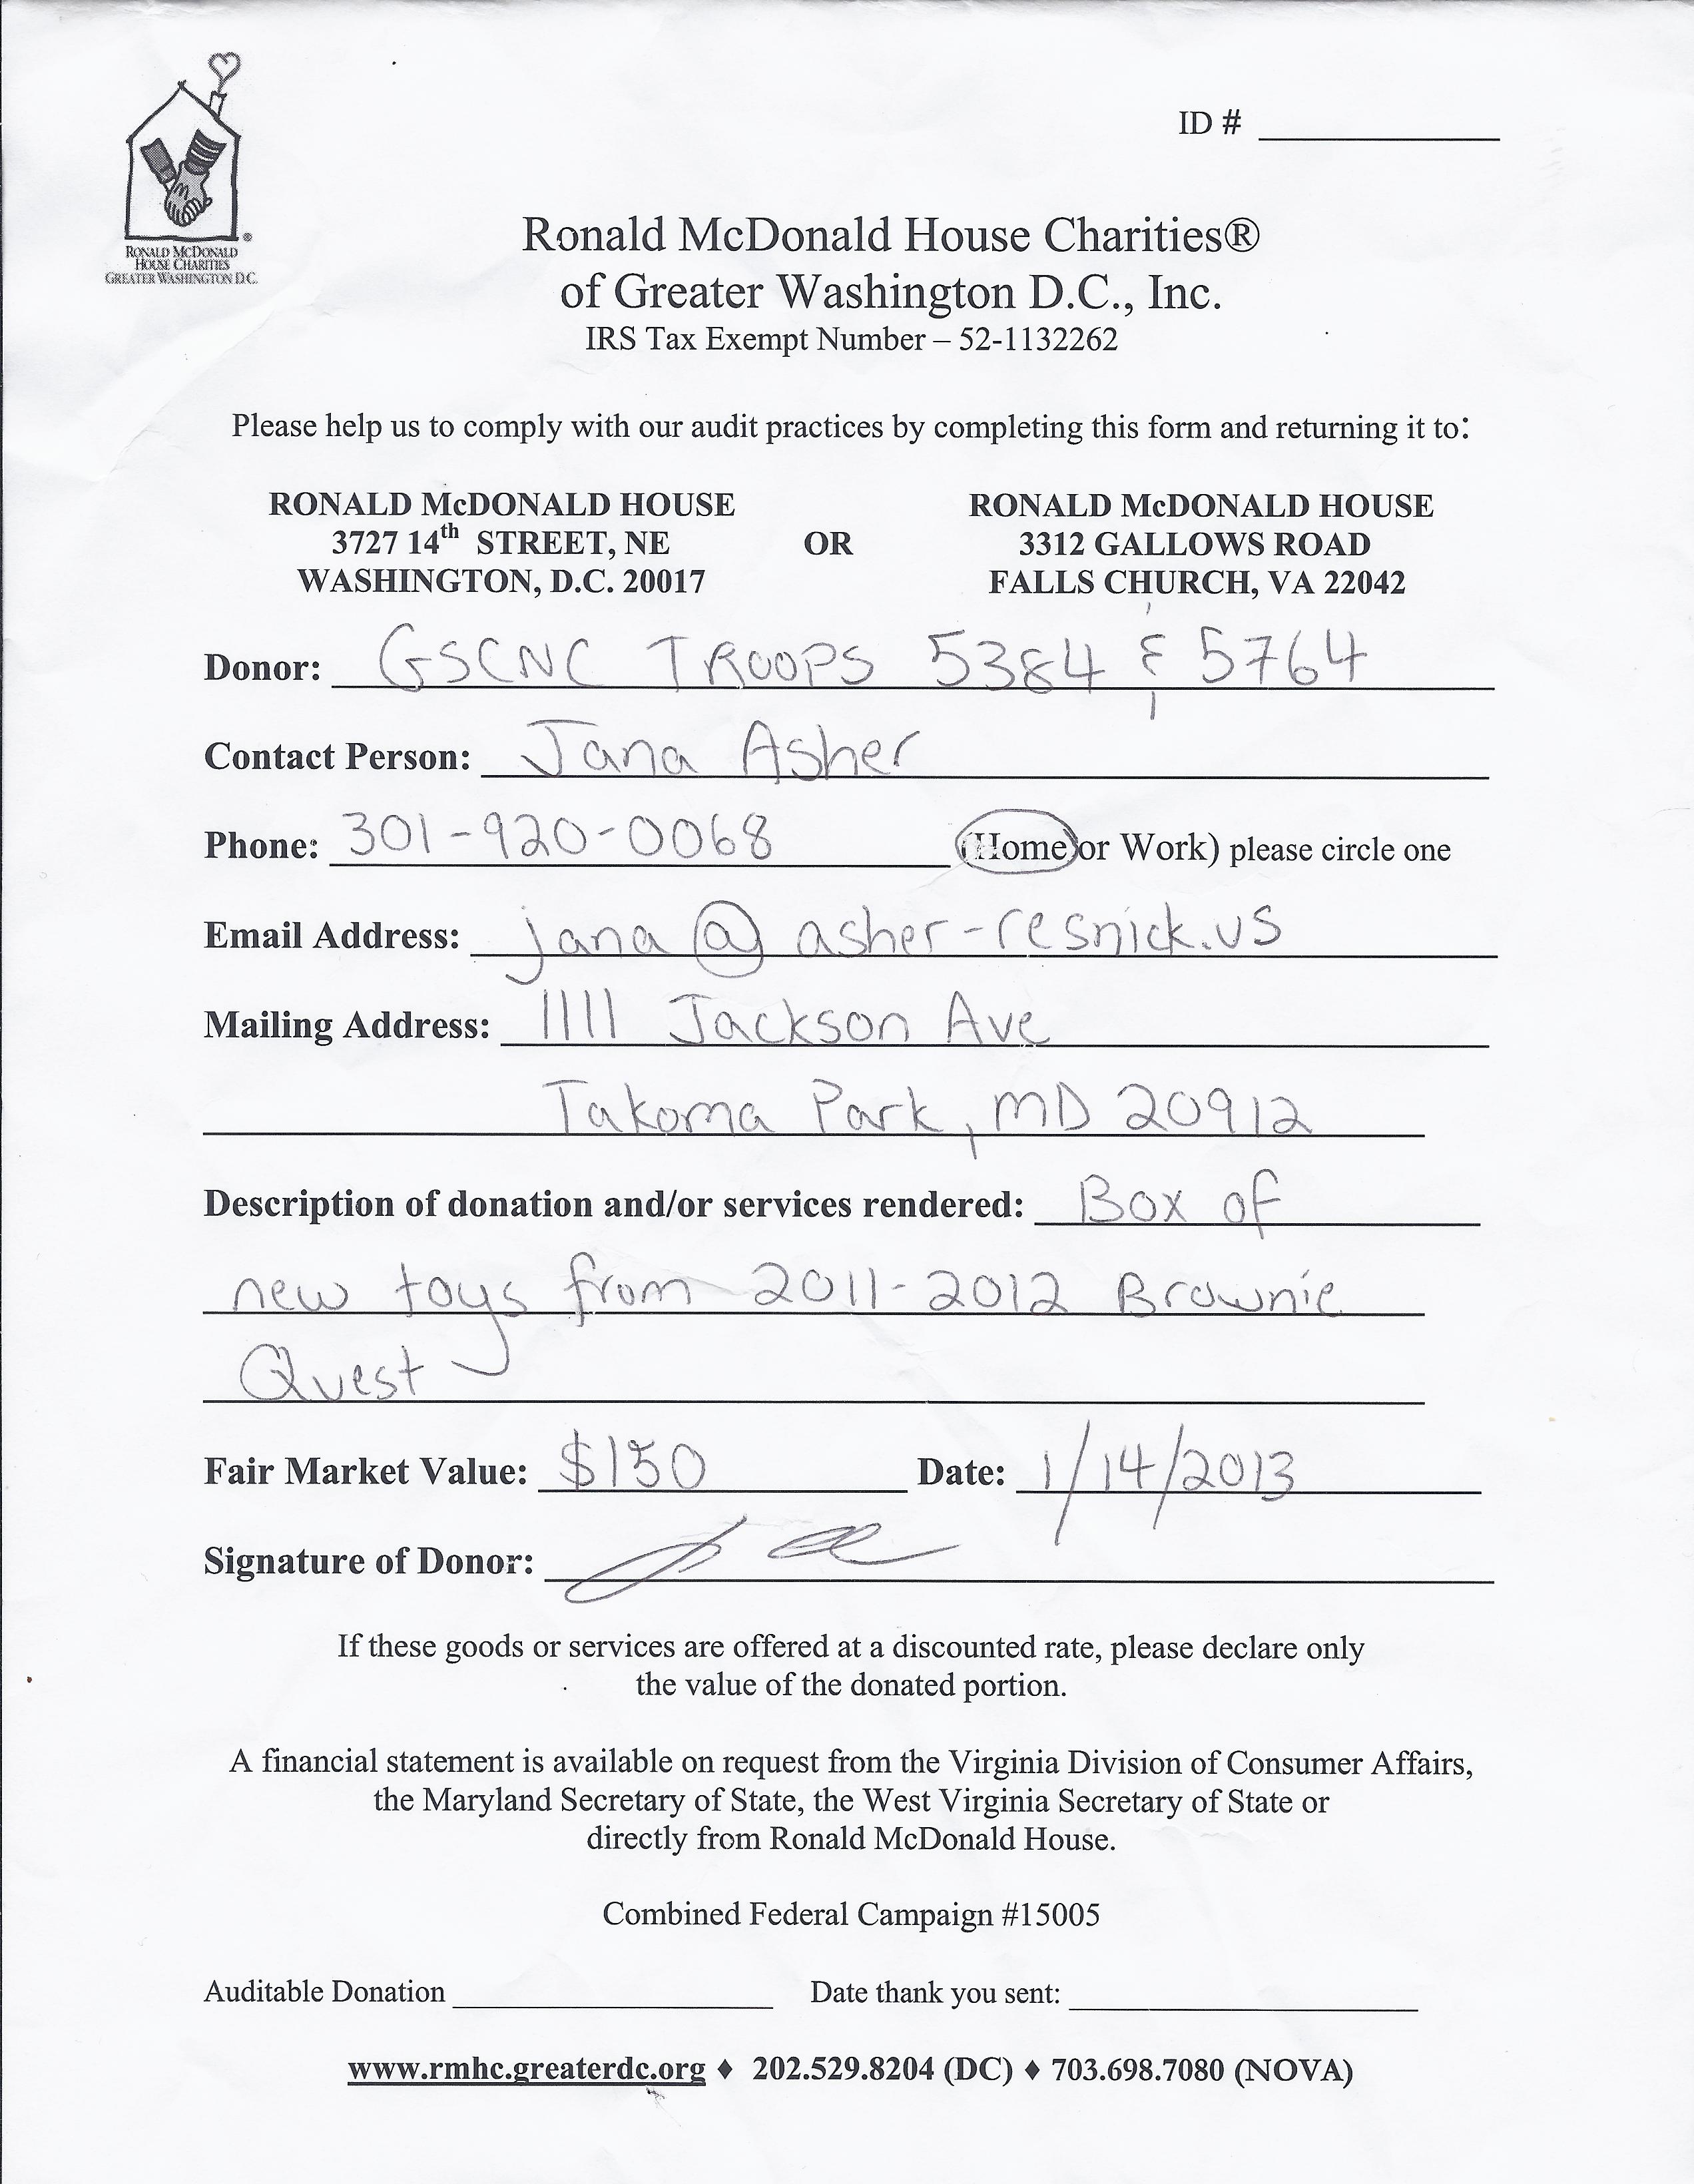 RONALD McDONALD
HOUSE CHARITIES
GREATER WASHINGTON D.C.
ID #
Ronald McDonald House Charities®
of Greater Washington D.C., Inc.
IRS Tax Exempt Number – 52-1132262
Please help us to comply with our audit practices by completing this form and returning it to:
RONALD McDONALD HOUSE
3727 14th STREET, NE
WASHINGTON, D.C. 20017
OR
RONALD McDONALD HOUSE
3312 GALLOWS ROAD
FALLS CHURCH, VA 22042
Donor: GSCNC TROOPS 5384 & 5764
Contact Person: Jana Asher
Phone: 301-920-0068 (Home or Work) please circle one
Email Address: jana@asher-resnick.us
Mailing Address: 1111 Jackson Ave
Takoma Park, MD 20912
Description of donation and/or services rendered: Box of
new toys from 2011-2012 Brownie
Quest
Fair Market Value: $150 Date: 1/14/2013
Signature of Donor:
If these goods or services are offered at a discounted rate, please declare only
the value of the donated portion.
A financial statement is available on request from the Virginia Division of Consumer Affairs,
the Maryland Secretary of State, the West Virginia Secretary of State or
directly from Ronald McDonald House.
Combined Federal Campaign #15005
Auditable Donation Date thank you sent:
www.rmhc.greaterdc.org ♦ 202.529.8204 (DC) ♦ 703.698.7080 (NOVA)